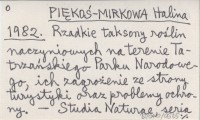 PIĘKOŚ-MIRKOWA Halina
1982. Rzadkie taksony roślin
naczyniowych na terenie Ta-
trzańskiego Parku Narodowe-
go, ich zagrożenie ze strony
turystyki oraz problemy ochro-
ny. — Studia Naturae, seria